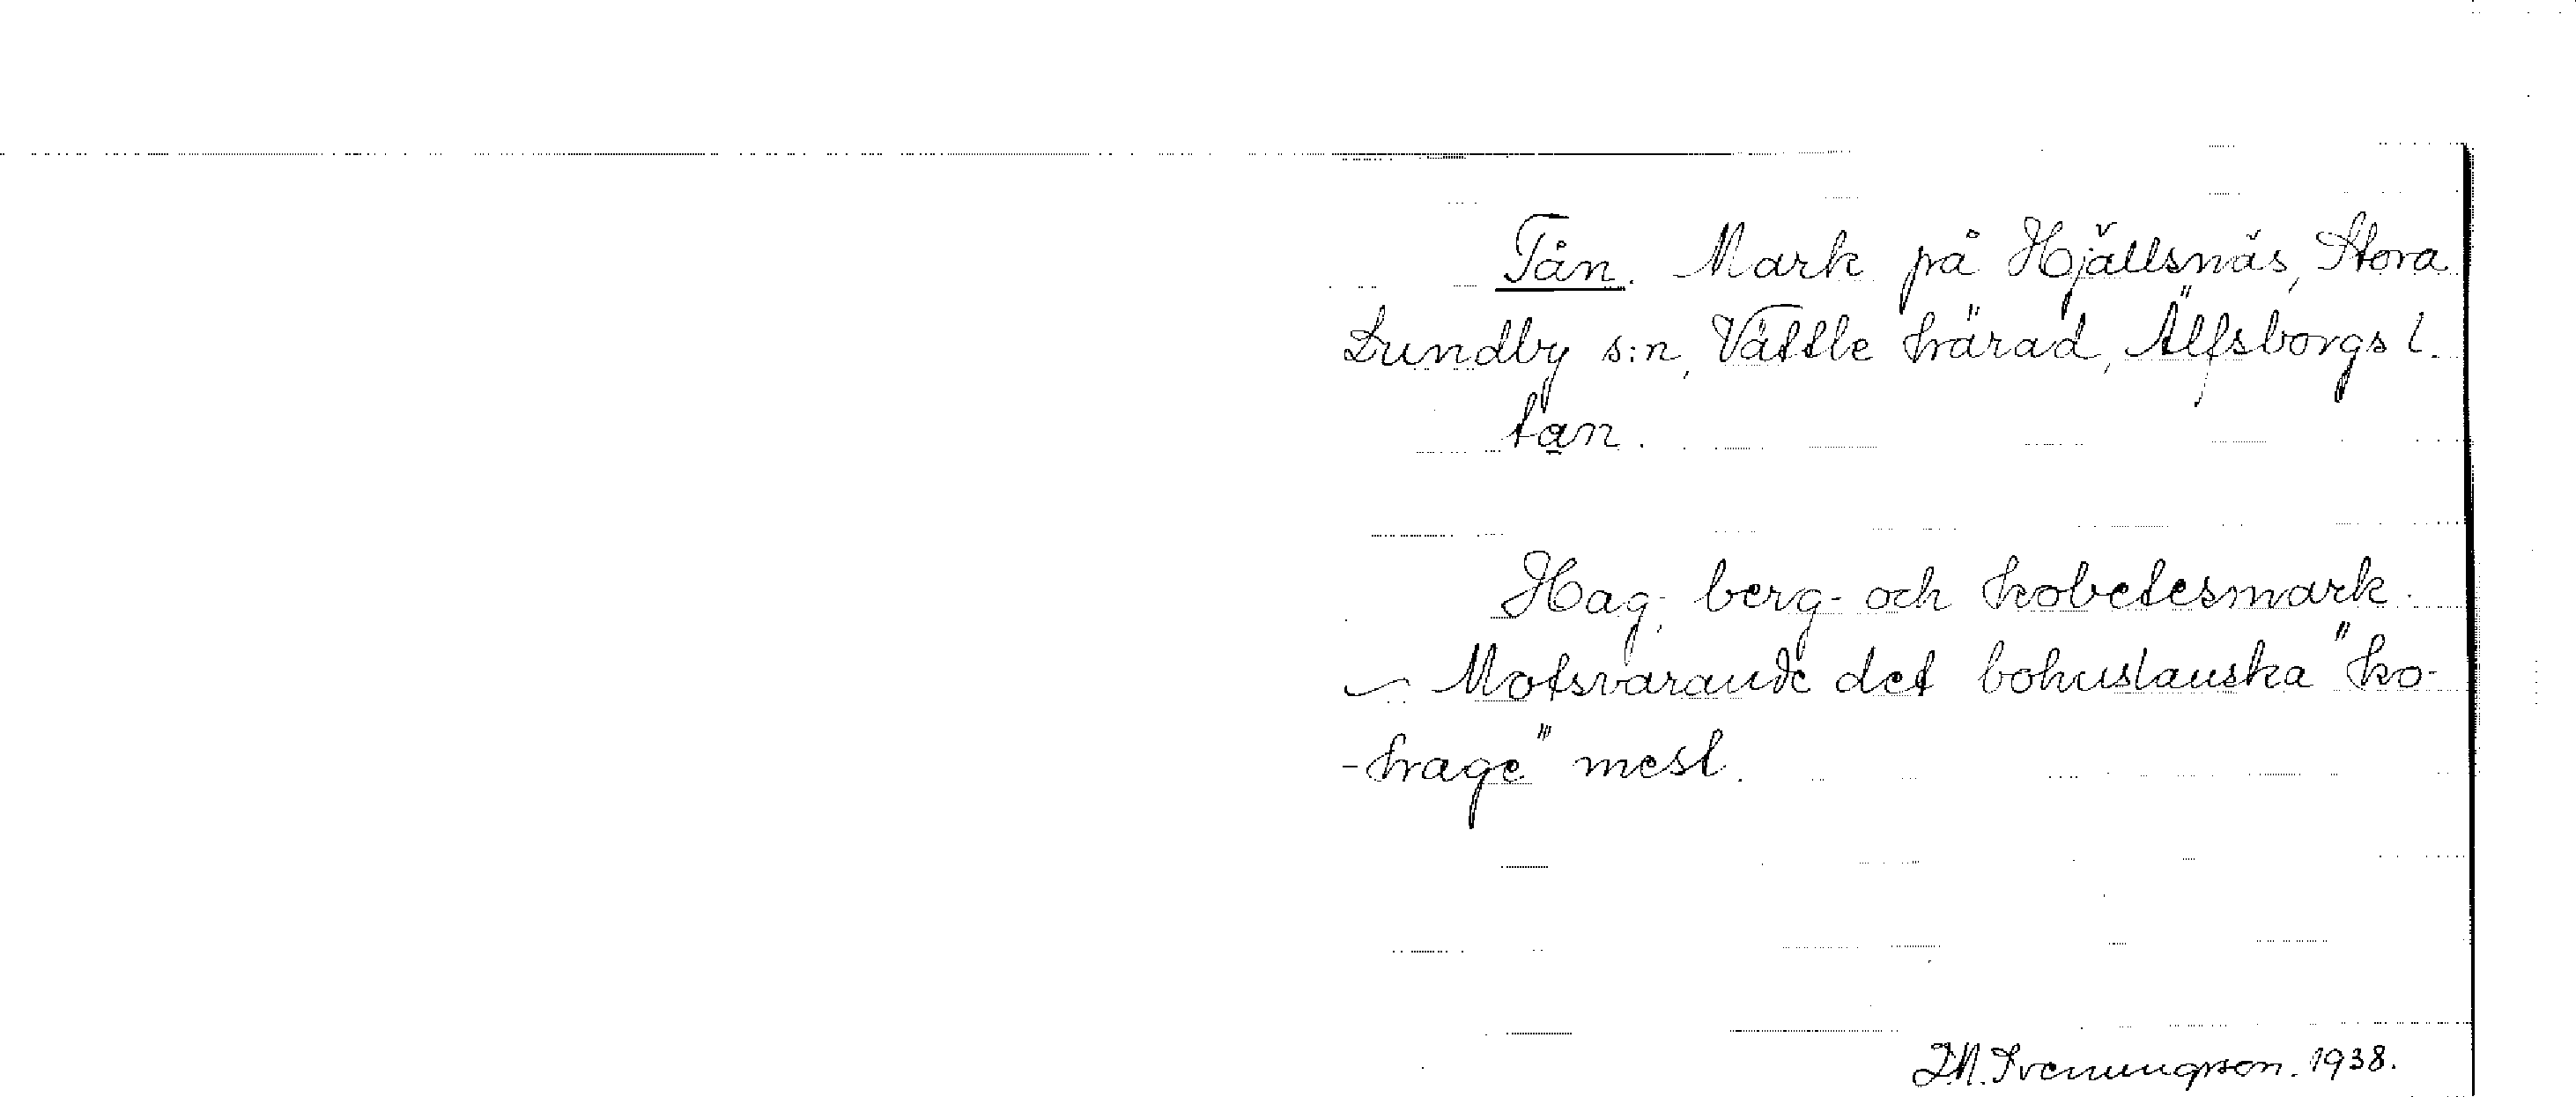 Tån. Mark på Hjällsnäs, Stora
Lundby s:n, Vättle härad, Älfsborgs l.
tan.
Hag-, berg- och kobetesmark.
Motsvarande det bohuslänska "ko-
-hage" mest.
J.M. Svenungsson. 1938.